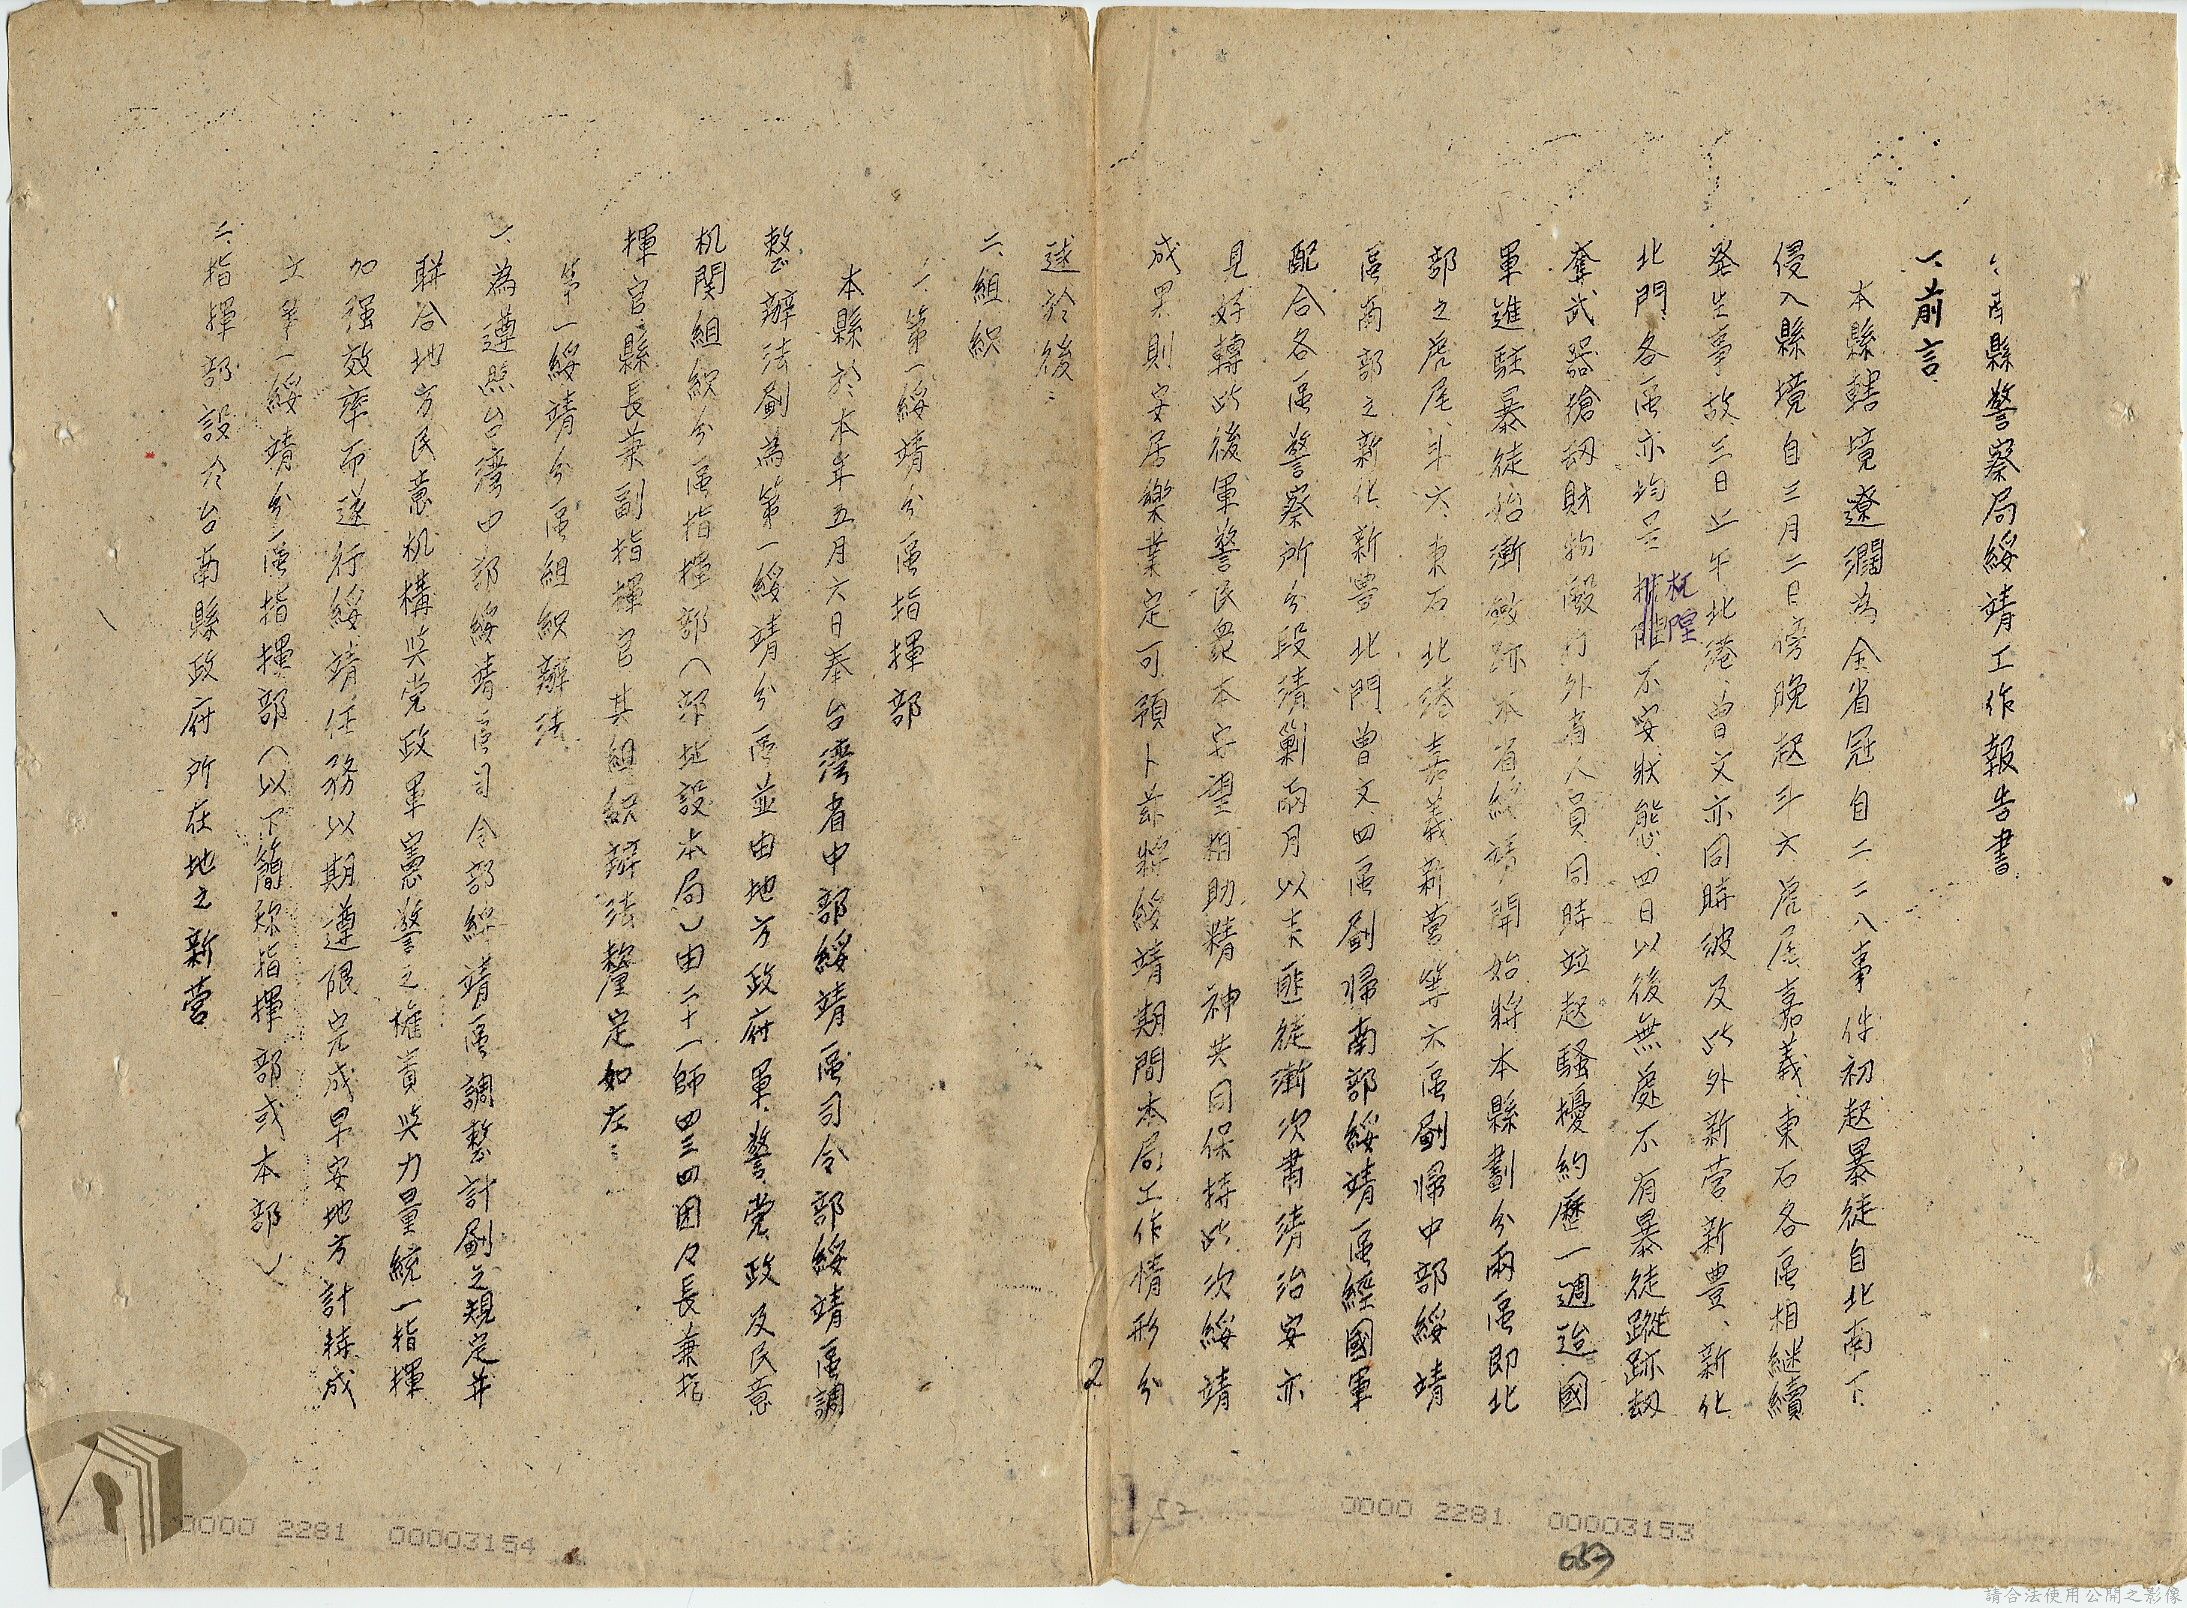 台南縣警察局綏靖工作報告書
一、前言
本縣轄境遼濶為全省冠自二二八事件初起暴徒自北南下
侵入縣境自三月二日傍晚起斗六虎尾嘉義東石各區相継續
発生事故三日上午北港、曾文亦同時波及此外新营新豊、新化
北門各區亦均呈杌隉不安狀態、四日以後無處不有暴徒蹤跡刼
奪武器搶刼財物毆打外省人員同時竝起騷擾約歷一週迨國
軍進駐暴徒始漸斂跡本省綏靖開始將本縣劃分兩區即北
部之虎尾、斗六、東石、北港嘉義新营等六區劃帰中部綏靖
區南部之新化、新豊北門、曾文四區劃帰南部綏靖區經國軍
配合各區警察所分段清剿兩月以来匪徒漸次肅清治安亦
見好轉此後軍警民衆本守望相助精神共同保持此次綏靖
成果則安居樂業定可預卜茲將綏靖期間本局工作情形分
述於後：
二、組織
一、第一綏靖分區指揮部
本縣於本年五月六日奉台湾省中部綏靖區司令部綏靖區調
整辦法劃為第一綏靖分區並由地方政府軍、警、党政及民意
机関組織分區指揮部（部址設本局）由二十一師四三四团々長兼指
揮官縣長兼副指揮官其組織辦法釐定如左：
第一綏靖分區組織辦法
一、為遵照台湾中部綏靖區司令部綏靖區調整計劃之規定并
聯合地方民意机構與党政軍憲警之權責與力量統一指揮
加强效率而遂行綏靖任務以期遵限完成早安地方計特成
立第一綏靖分區指揮部（以下簡称指揮部或本部）
二、指揮部設於台南縣政府所在地之新营
2
0000 2281 00003153
0000 2281 00003154
請合法使用公開之影像